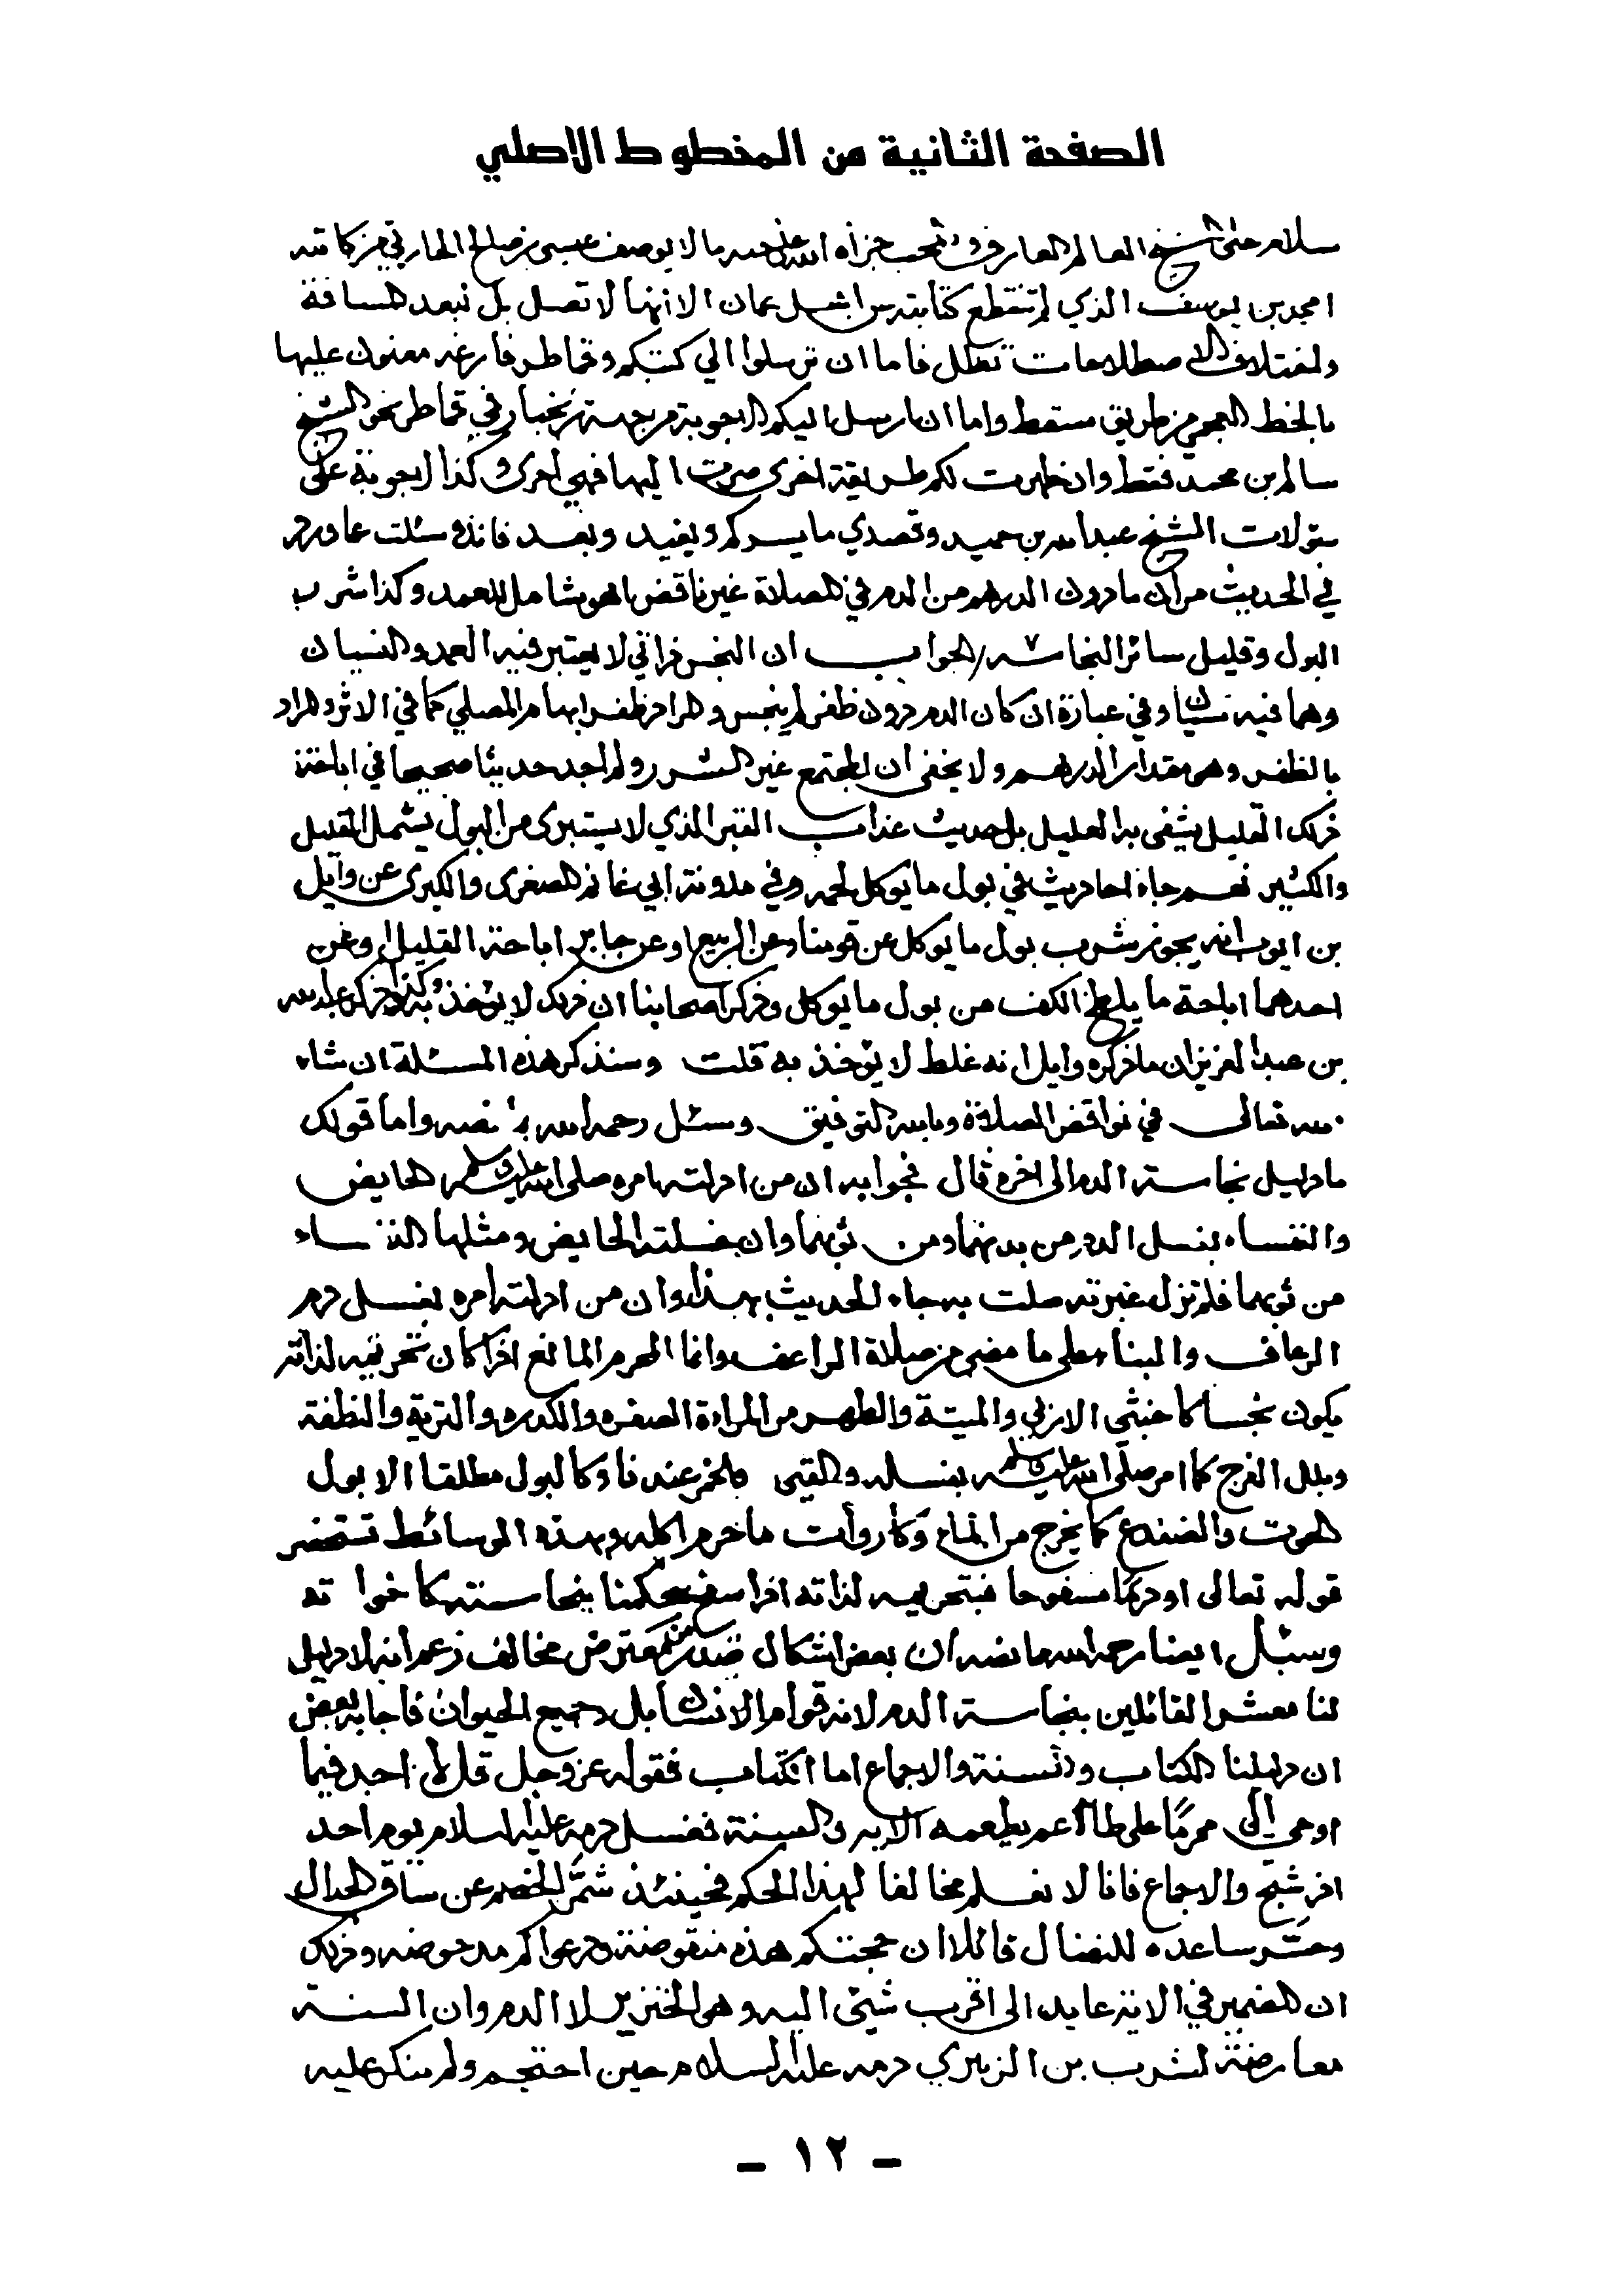 الصفحة الثانية من المخطوط الاصلي
سلام على الشيخ العالم العارف محب جزاه الله عني خير ما لا يوصف عيسى بن صالح الحارثي من كاتبه
امحمد بن يوسف الذي لم تنقطع كتابته من اهل عمان الا انها لا تصل بل لبعد المسافة
ولختلاف الاصطلاحات تعطل فاما ان ترسلوا الي كتبكم وقماطر فارغه معنون عليها
بالخط العجمي من طريق مسقط واما ان ارسل اليكم الاجوبة من جهة زنجبار في قماطر نحو الشيخ
سالم بن محمد فقط وان ظهرت لكم طريقة اخرى صرت اليها فهي احرى وكذا الاجوبة على
سؤلات الشيخ عبد الله بن حميد وقصدي ما يسركم ويفيد وبعد فانك سئلت عما ورد
في الحديث من ان ما دون الدرهم من الدم في الصلاة غير ناقض اهو شامل للعمد وكذا شرب
البول وقليل سائر النجاسة / الجواب ان النجس ذاتي لا يعتبر فيه العمد والنسيان
وهما فيه سيان وفي عبارة ان كان الدم دون ظفر لم ينجس والمراد ظفر ابهام المصلي كما في الاثر والمراد
بالظفر وهو مقدار الدرهم ولا يخفى ان المجتمع غير الشرر ولم اجد حديثا صحيحا في اباحة
ذلك القليل يشفى به العليل بل حديث عذاب القبر الذي لا يستبرى من البول يشمل القليل
والكثير نعم جاء احاديث في بول ما يوكل لحمه وفي مدونة ابي غانم الصغرى والكبرى عن وايل
بن ايوب انه يجوز شرب بول ما يوكل عن قومنا وعن الربيع او عن جابر اباحة القليل او عن
احدهما اباحة ما يبلغ الكف من بول ما يوكل وذكر اصحابنا ان ذلك لا يؤخذ به وكذا ذكر عبد الله
بن عبد العزيز ان ما ذكره وايل انه غلط لا يؤخذ به قلت وسنذكر هذه المسئلة ان شاء
الله تعالى في نواقض الصلاة وبالله التوفيق وسئل رحمه الله بما نصه واما قولك
ما دليل نجاسة الدم الى اخره قال فجوابه ان من ادلته امره صلى الله عليه وسلم الحايض
والنفساء بغسل الدم من بدنهما ومن ثوبهما وان غسلته الحايض ومثلها النفساء
من ثوبهما فلم تزل غيرته صلت به جاء الحديث بهذا وان من ادلته امره بغسل دم
الرعاف والبناء على ما مضى من صلاة الراعف وانما المحرم المائع اذا كان تحريمه لذاته
يكون نجسا كاخنثي الازلي والميتة والطهر من المراءة الصفره والكدره والترية والنطفة
وبلل الفرج كما امر صلى الله عليه وسلم بغسله والقيى والخمر عندنا وكالبول مطلقا الا بول
الحوت والضفدع كما يخرج من الماء وكأروأت ما حرم اكله وبهذه الوسائط تستحضر
قوله تعالى او دمًا مسفوحا فبتحريمه لذاته اذا سفح حكمنا بنجاسته كاخواته
وسئل ايضا رحمه الله ما نصه ان بعض اشكال صدر من معترض مخالف زعم انه لا دليل
لنا معشر القائلين بنجاسة الدم لانه قوام الانسان بل وجميع الحيوان فاجابه بعض
ان دليلنا الكتاب والسنة والاجماع اما الكتاب فقوله عز وجل قل لا اجد فيما
اوحى إلى محرمًا على طاعم يطعمه الايه والسنة فغسل دمه عليه السلام يوم احد
اذ شج والاجماع فانا لا نعلم مخالفا لهذا الحكم فحينئذ شمّر الخصم عن ساق الجدال
وحسر ساعده للنضال قائلا ان حجتكم هذه منقوضة ودعواكم مدحوضه وذلك
ان الضمير في الاية عايد الى اقرب شيئ اليه وهو الخنزير لا الدم وان السنة
معارضة لشرب بن الزبيري دمه عليه السلام حين احتجم ولم ينكر عليه
- ١٢ -